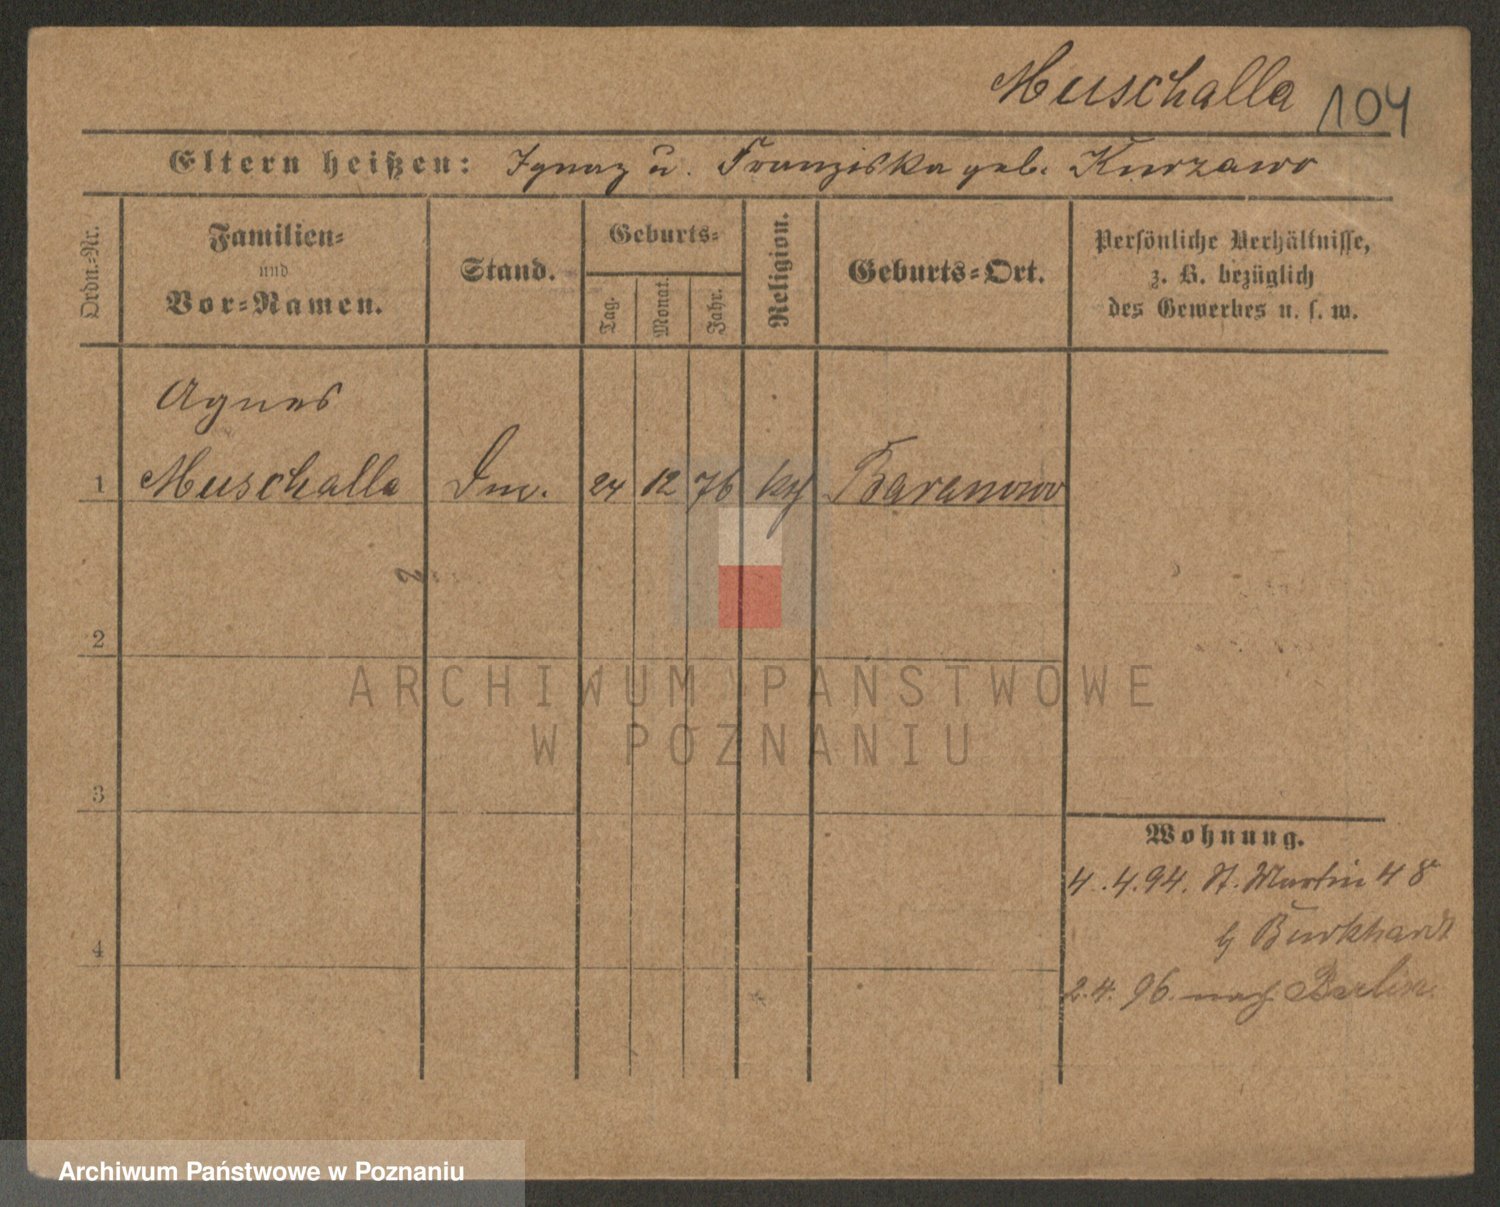 Muschalla 104
Eltern heißen: Ignaz u. Franziska geb. Kurzawa
Ordn.-Nr.
Familien-
und
Vor-Namen.
Stand.
Geburts-
Tag.
Monat.
Jahr.
Religion.
Geburts-Ort.
Persönliche Verhältnisse,
z. B. bezüglich
des Gewerbes u. s. w.
Agnes
1 Muschalla 24 12 76 kth Baranowo
2
3
4
Wohnung.
4. 4. 94. St. Martin 48
Burkhardt
2. 4. 96. nach Berlin.
ARCHIWUM PAŃSTWOWE
W POZNANIU
Archiwum Państwowe w Poznaniu